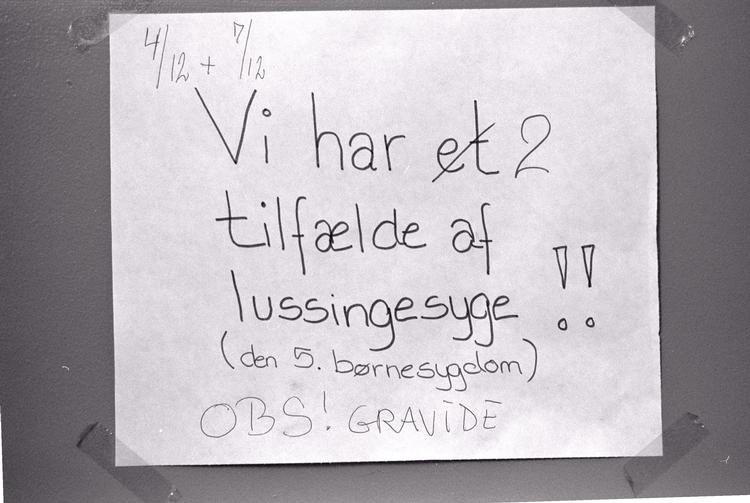 4/12 + 7/12
Vi har et 2
tilfælde af
lussingesyge !!
(den 5. børnesygdom)
OBS! GRAVIDE